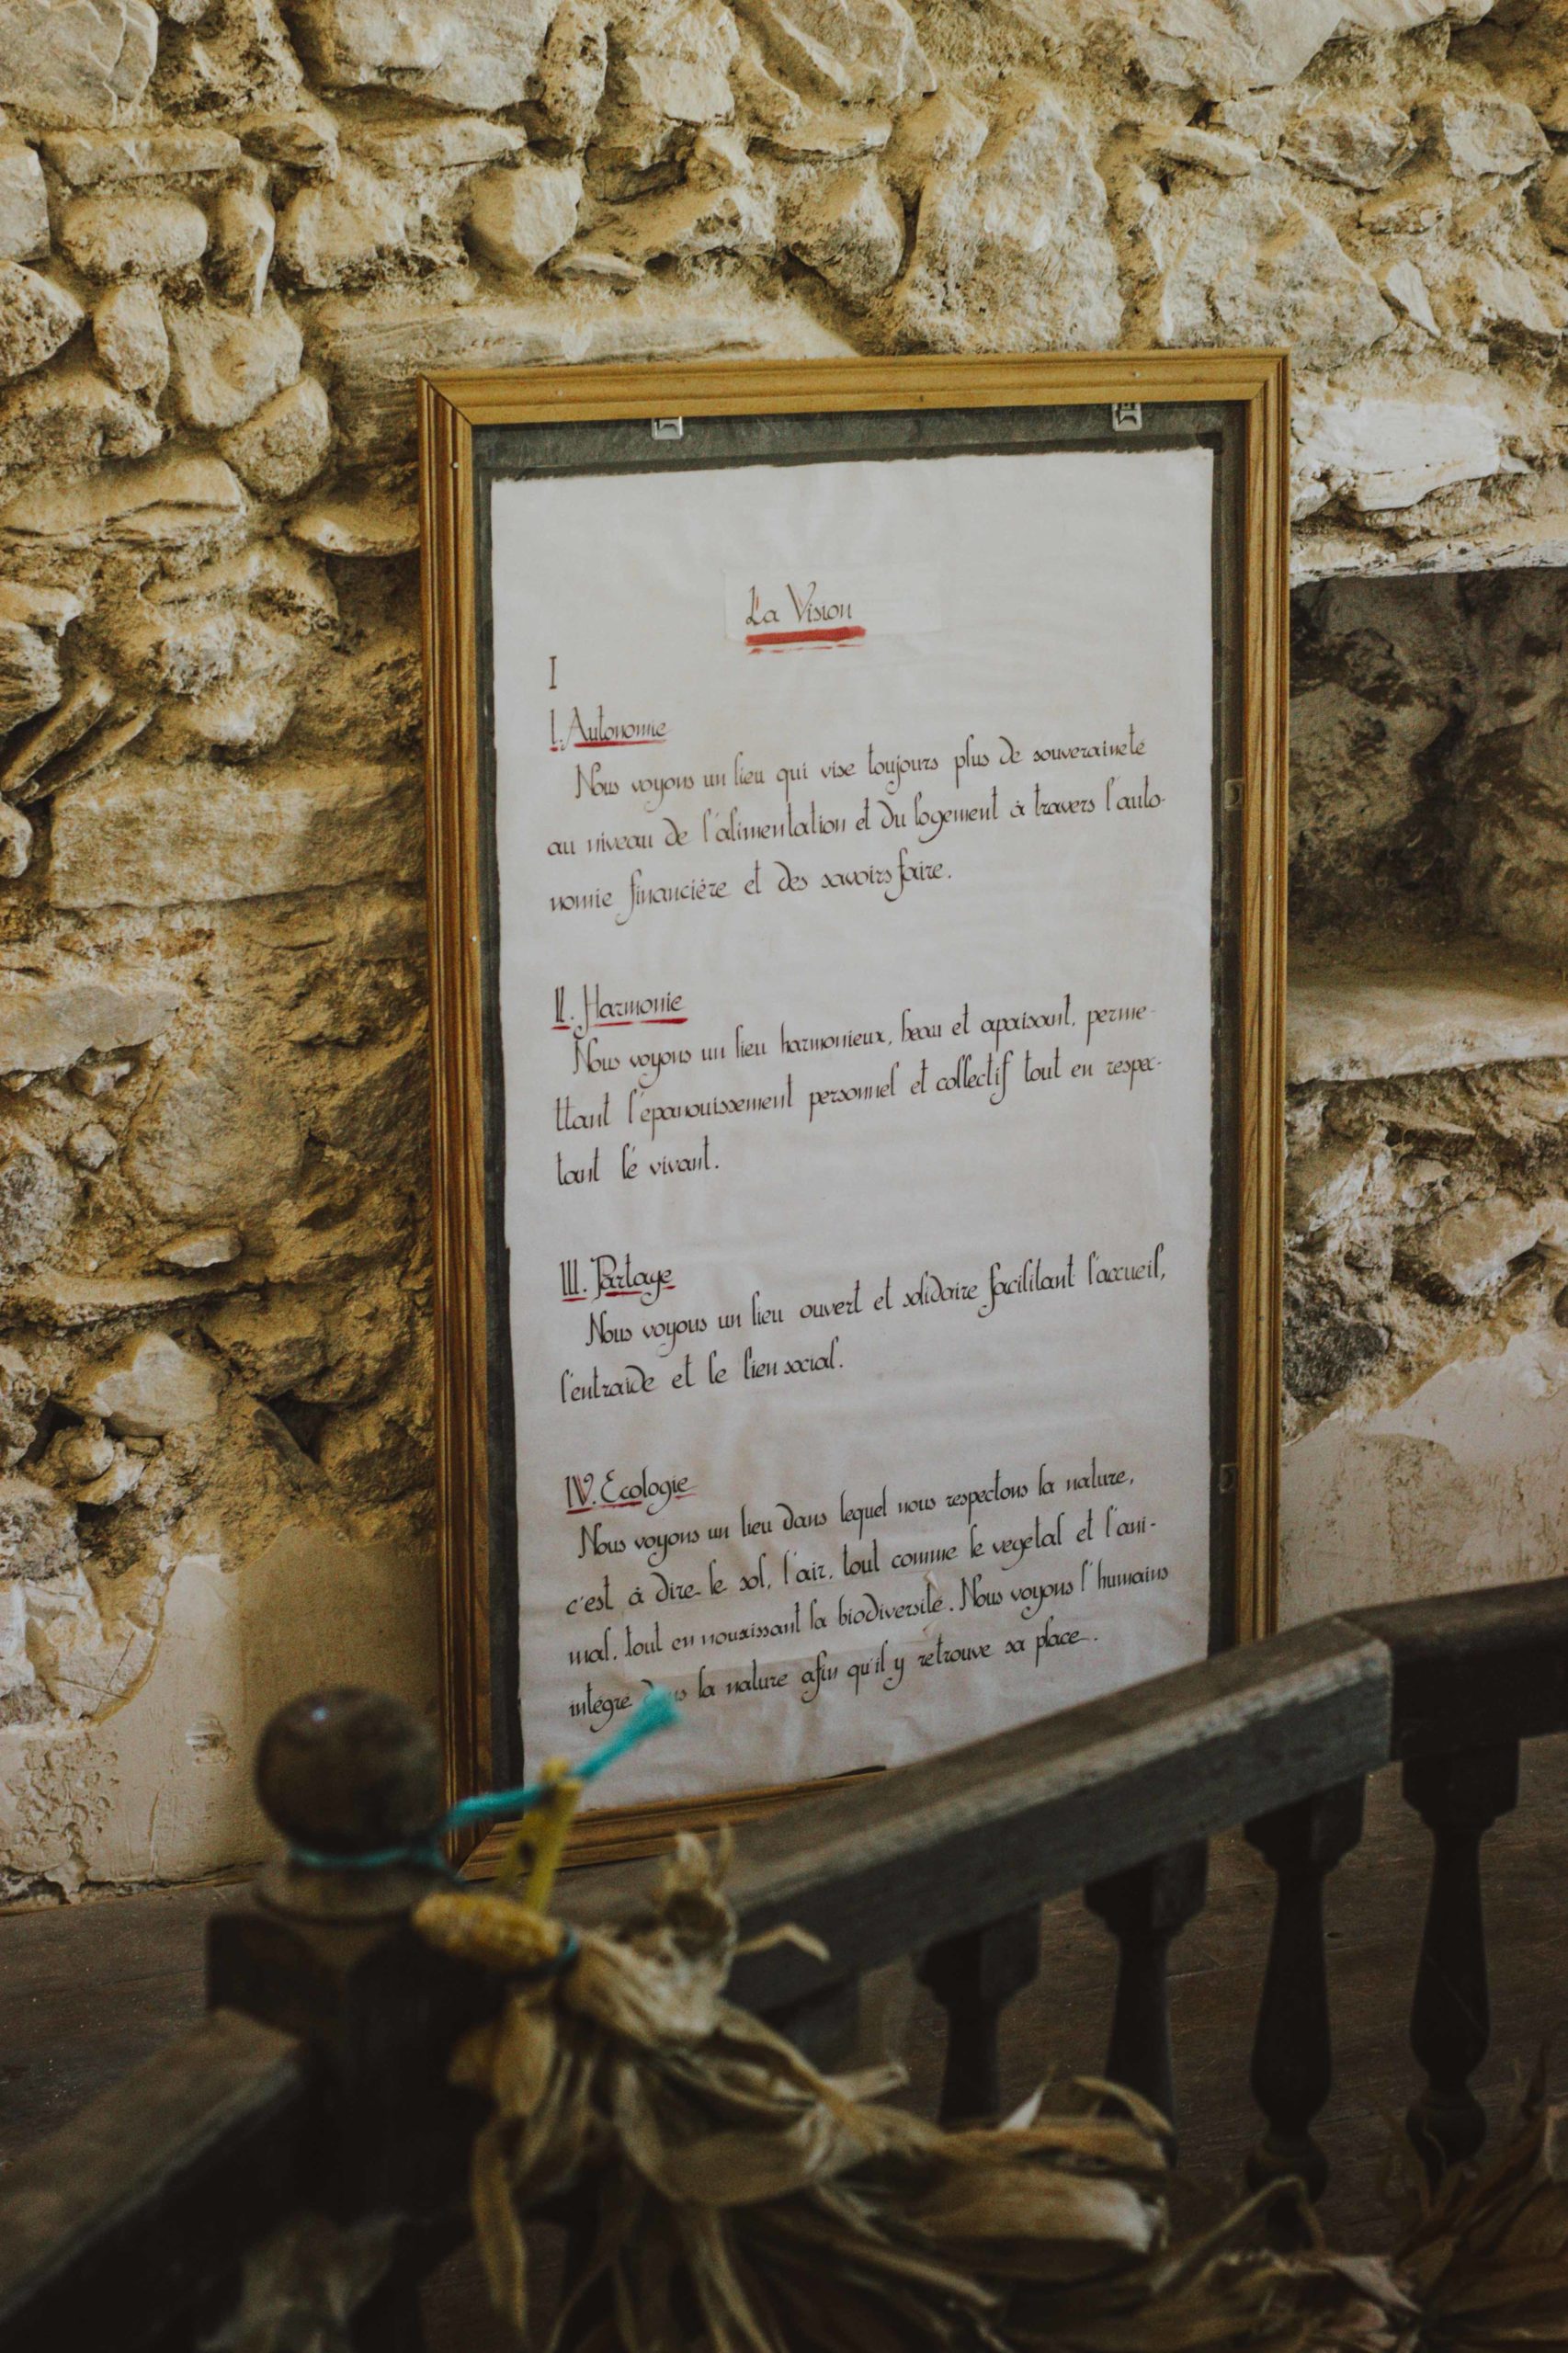 La Vision
I
I. Autonomie
Nous voyons un lieu qui vise toujours plus de souveraineté
au niveau de l'alimentation et du logement à travers l'auto-
nomie financière et des savoirs faire.
II. Harmonie
Nous voyons un lieu harmonieux, beau et apaisant, perme-
ttant l'épanouissement personnel et collectif tout en respec-
tant le vivant.
III. Partage
Nous voyons un lieu ouvert et solidaire facilitant l'accueil,
l'entraide et le lien social.
IV. Ecologie
Nous voyons un lieu dans lequel nous respectons la nature,
c'est à dire le sol, l'air, tout comme le vegetal et l'ani-
mal, tout en nourissant la biodiversité. Nous voyons l'humains
intégre dans la nature afin qu'il y retrouve sa place.